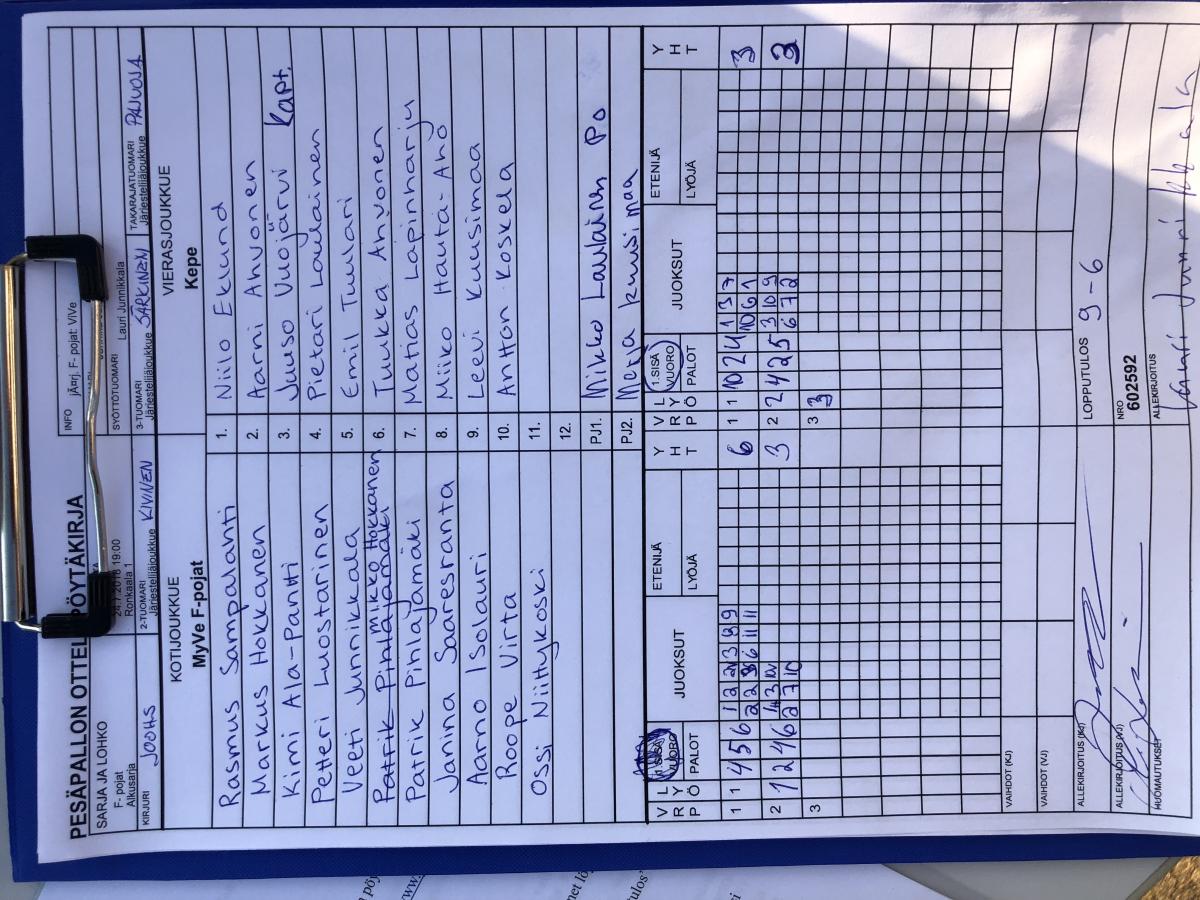 PESÄPALLON OTTEL PÖYTÄKIRJA
INFO jÃ¤rj. F- pojat: ViVe
SARJA JA LOHKO
F- pojat
Alkusarja
19:00
Ronkaala 1
SYÖTTÖTUOMARI
Lauri Junnikkala
KIRJURI JOOHS
2-TUOMARI
Järjestelijäjoukkue KIVINEN
3-TUOMARI
Järjestelijäjoukkue SÄRKINEN
TAKARAJATUOMARI
Järjestelijäjoukkue PAJUOJA
KOTIJOUKKUE
MyVe F-pojat
VIERASJOUKKUE
Kepe
Rasmus Sampalahti 1. Niilo Eklund
Markus Hokkanen 2. Aarni Ahvonen
Kimi Ala-Pantti 3. Juuso Vuojärvi Kapt.
Petteri Luostarinen 4. Pietari Laulainen
Veeti Junnikkala 5. Emil Tuulari
Mikko Hokkanen
Patrik Pihlajamäki 6. Tuukka Ahvonen
Patrik Pihlajamäki 7. Matias Lapinharju
Janina Saaresranta 8. Miiko Hauta-Aho
Aarno Isolauri 9. Leevi Kuusimaa
Roope Virta 10. Anton Koskela
Ossi Niittykoski 11.
12.
PJ1. Mikko Laulainen PO
PJ2. Merja Kuusimaa
V R P L Y Ö VUORO PALOT JUOKSUT ETENIJÄ LYÖJÄ Y H T
V R P L Y Ö 1.SISÄ VUORO PALOT JUOKSUT ETENIJÄ LYÖJÄ Y H T
1 1 4 5 6 6
1 1 10 2 4 1 3 7 3
10 6 1
2 1 2 4 6 3
2 7 10
2 2 4 2 5 3 10 9 3
6 7 2
3
3 3
VAIHDOT (KJ)
VAIHDOT (VJ)
ALLEKIRJOITUS (KJ)
LOPPUTULOS 9-6
ALLEKIRJOITUS (VJ)
NRO
602592
HUOMAUTUKSET
ALLEKIRJOITUS
Lauri Junnikkala